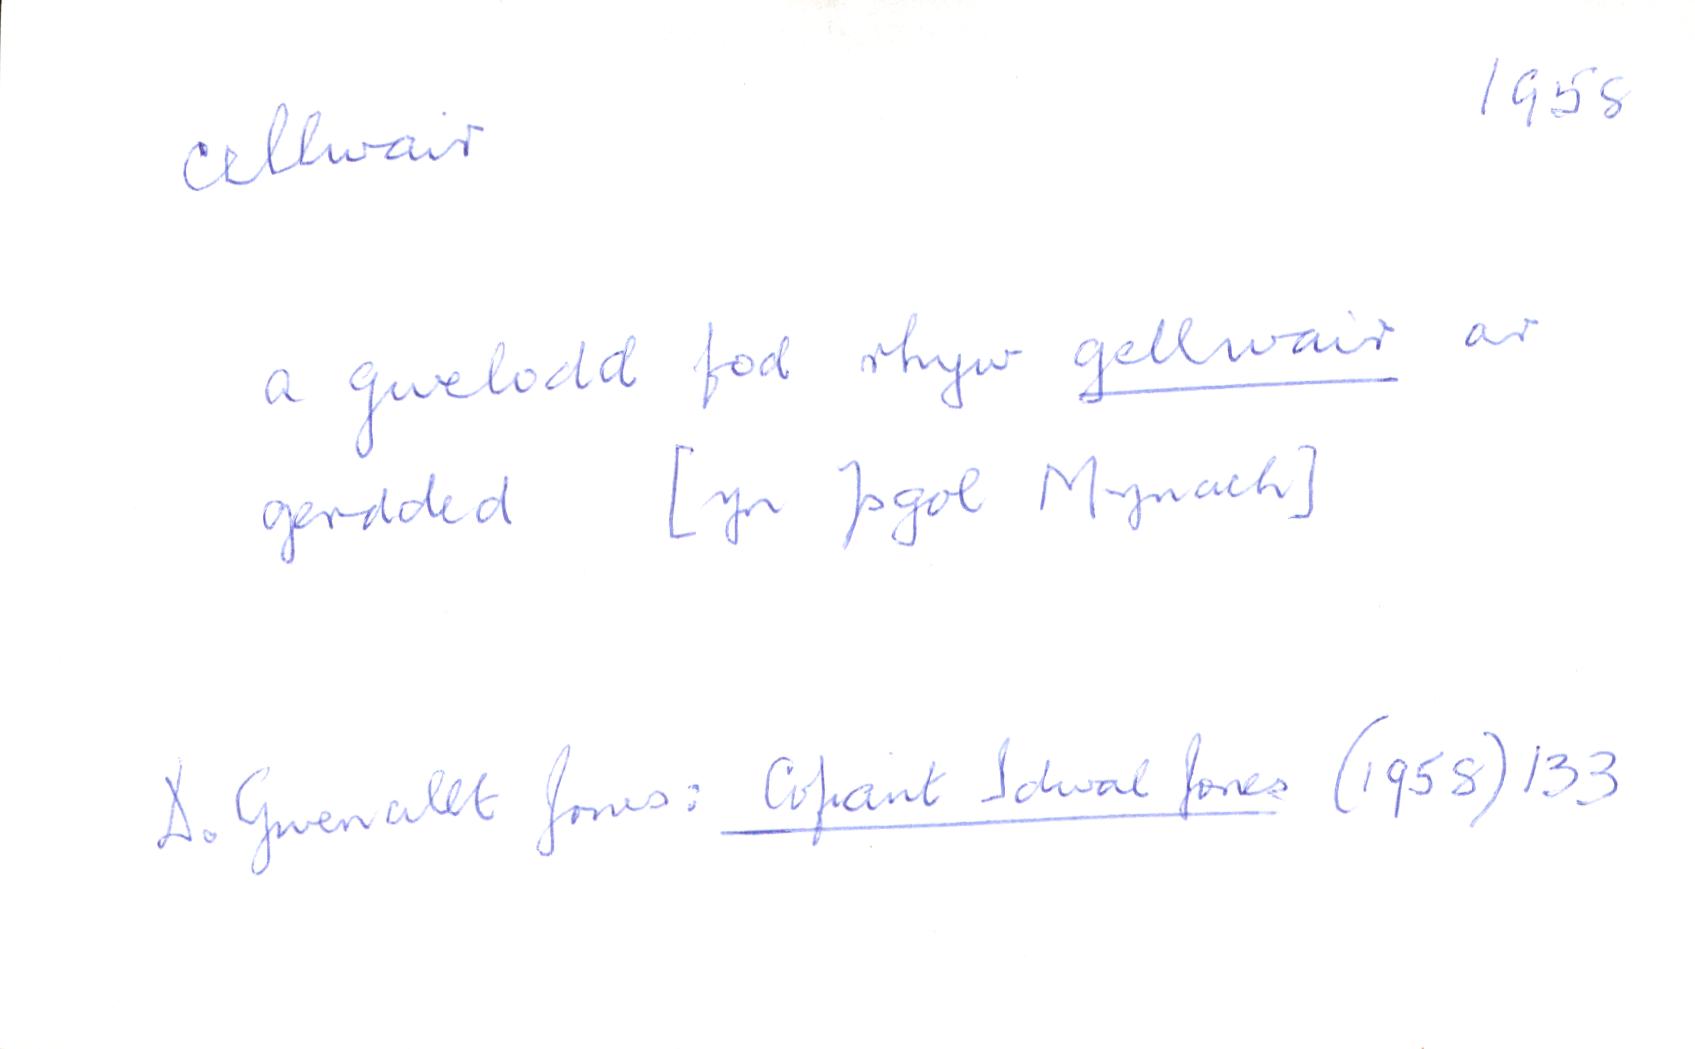 1958
cellwair
a gwelodd fod rhyw gellwair ar
gerdded [yn Ysgol Mynach]
D. Gwenallt Jones: Cofiant Idwal Jones (1958) 133